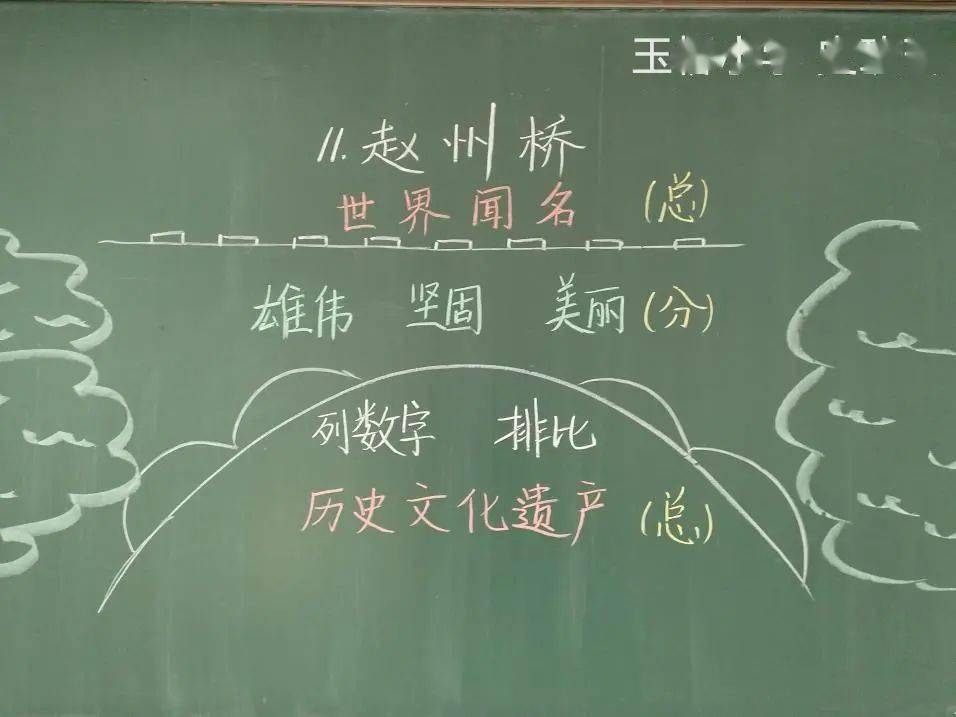 玉
11. 赵州桥
世界闻名 (总)
雄伟 坚固 美丽 (分)
列数字 排比
历史文化遗产 (总)